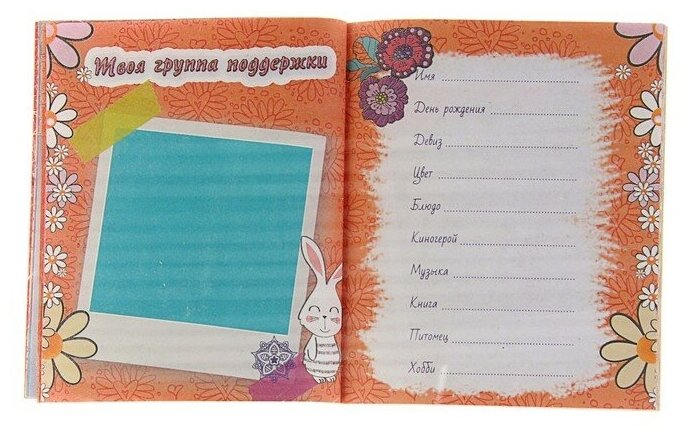 Твоя группа поддержки
Имя
День рождения
Девиз
Цвет
Блюдо
Киногерой
Музыка
Книга
Питомец
Хобби